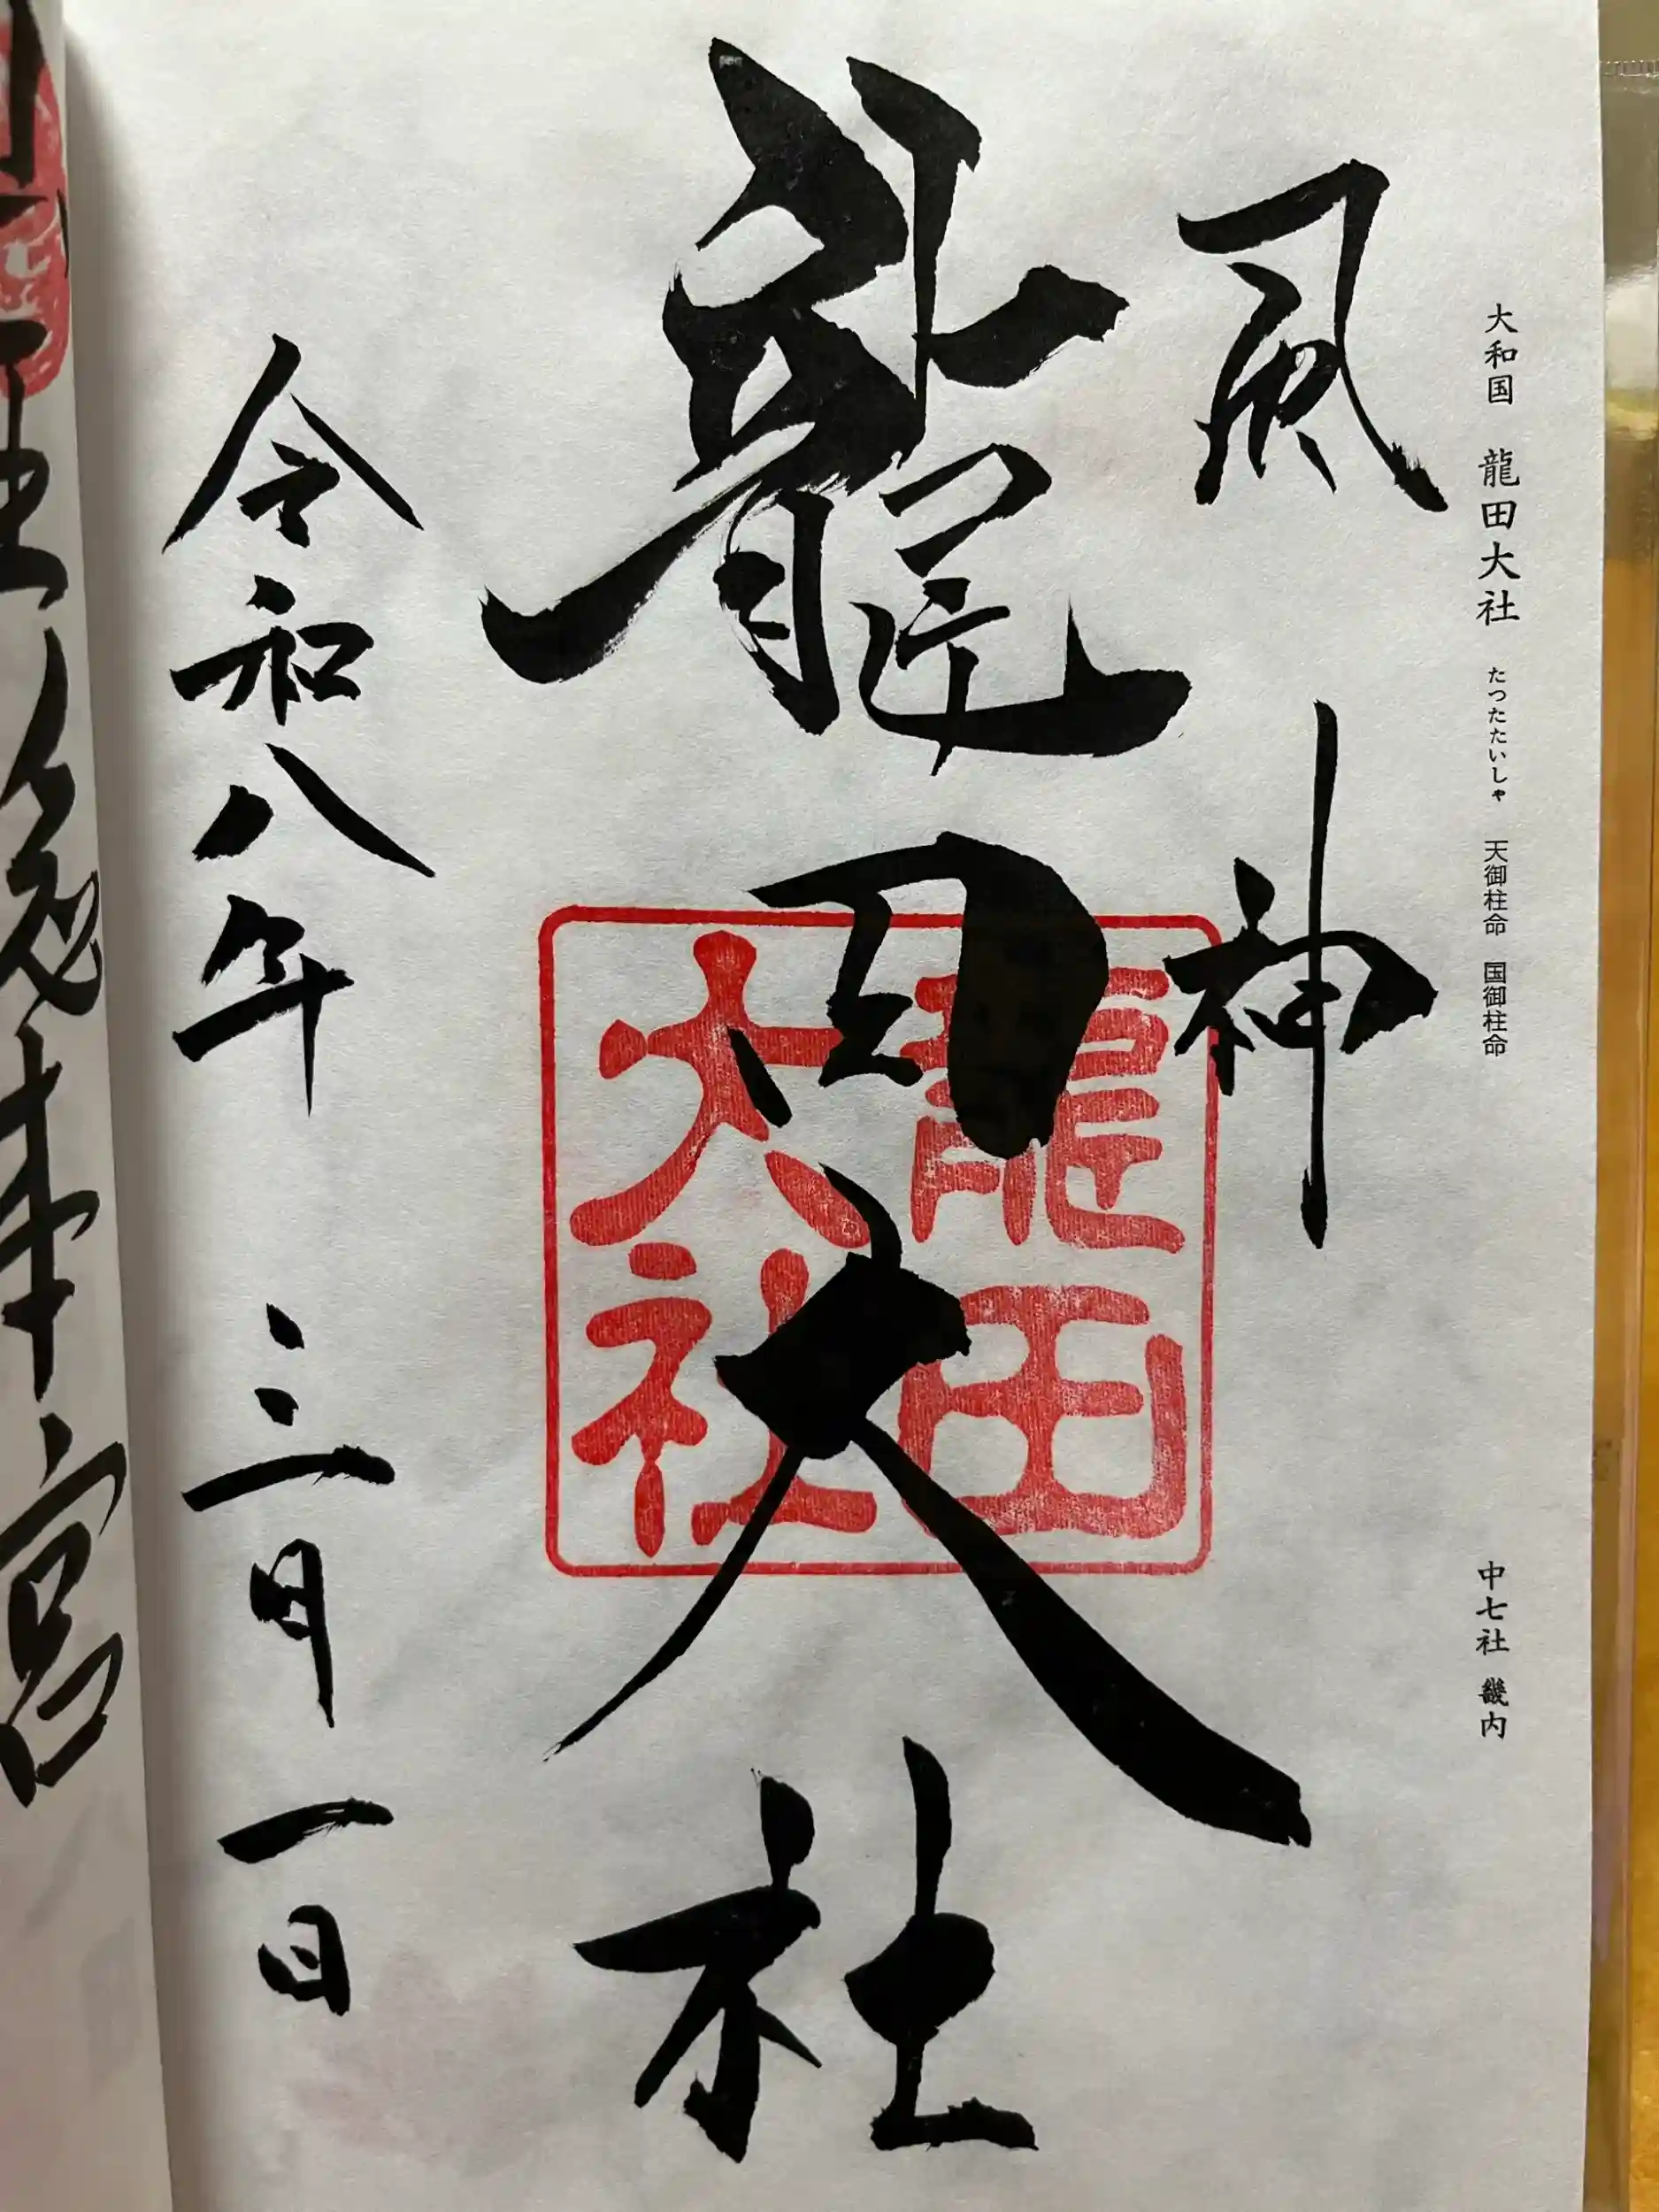 大和国 龍田大社 たつたたいしゃ 天御柱命 国御柱命
中七社 畿内
風神
龍田大社
龍田
大社
令和八年 三月一日
本宮